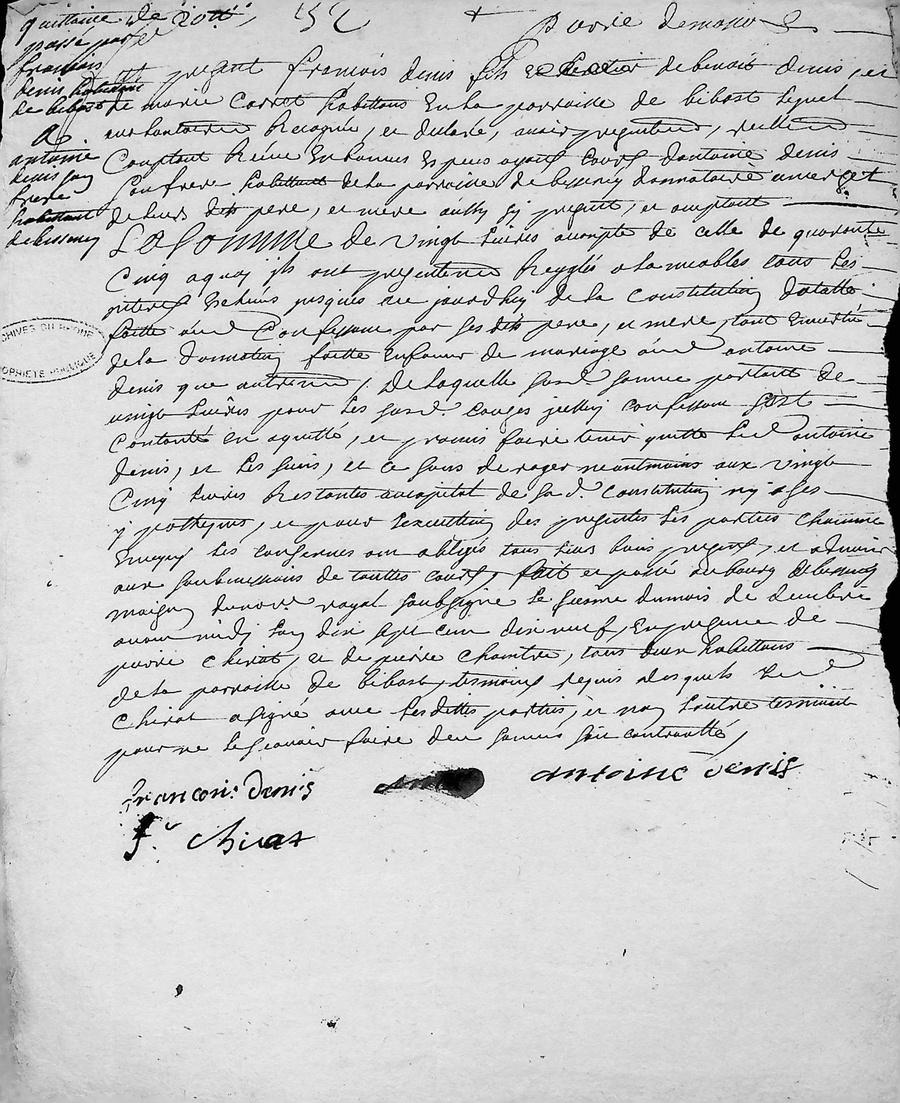 quittance de 20 tt
passé par
françois
denis habitant
de bibost
A
antoine
denis son
frere
habitant
de bessenay
52
fut present francois denis fils de benoit denis, et
de marie carret habittans en la parroisse de bibost lequel
Comptant Reelle en bonnes Especes ayant cours d'antoine denis
son frere habittant de la parroisse de bessenay donnataire
de leurs dits pere, et mere aussy sy present, et acceptant
La Somme de vingt Livres acompte de celle de quarante
Cinq a quoy ils ont presentement Regglés
interest Escheus jusques au jourdhuy de la Constitution dotalle
faitte aud Confessant par ses dits pere, et mere, tout en vertu
de la Donnation faitte en faveur de mariage aud antoine
denis que autrement, De laquelle susd somme portant de
vingt Livres pour les susd. causes jcelluy confessant s'est
Contanté en a quitté, et promis faire tenir quitte led antoine
denis, et les siens, et ce sans deroger neantmoins aux vingt
Cinq livres Restantes au capital de sa d. Constitution ny a ses
ypotheques, et pour l'execution des presentes les parties chacune
Envoyant les concernes ont obligés tous leurs biens presents, et advenir
aux soubmissions de touttes cours, fait et passé au bourg de bessenay
maison du no.re royal soubsigné le du mois de decembre
avant midy lan dix sept cent dix neuf, En presence de
pierre chirat, et de pierre chambre, tous deux habittans
de la parroisse de bibost, tesmoins requis desquels led
Chirat a signé avec lesdittes parties, et non lautre tesmoint
pour ne le scavoir faire de ce sommé
francois denis
antoine denis
p. chirat
ARCHIVES DU RHONE
PROPRIETE PUBLIQUE